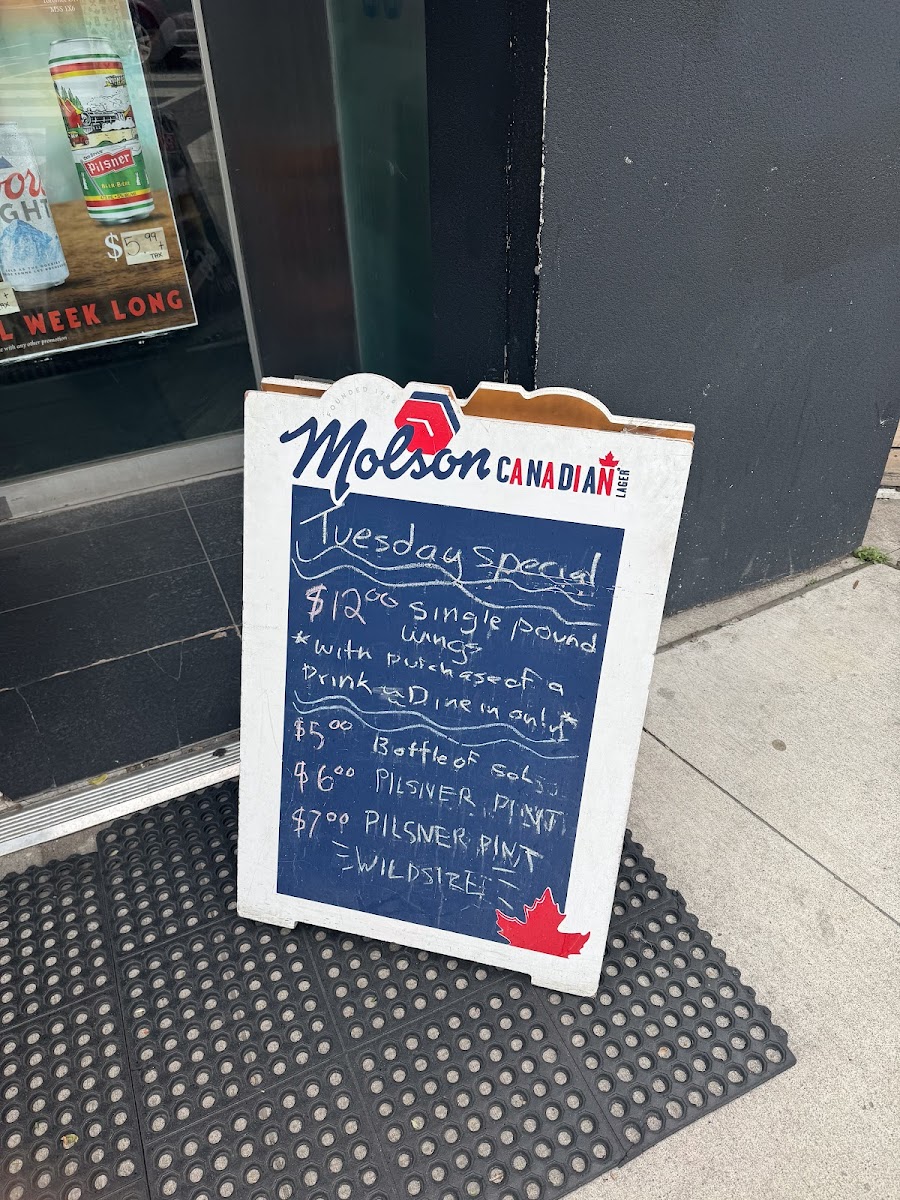 M5S 1X6
Pilsner
BEER BIÈRE
GHT
$5.99
+
TAX
WEEK LONG
with any other promotion
FOUNDED 1786
Molson CANADIAN
LAGER
Tuesday special
$12.00 single pound
wings
*with purchase of a
Drink & Dine in only*
$5.00 Bottle of
$6.00 PILSNER PINT
$7.00 PILSNER PINT
WILDSIZE